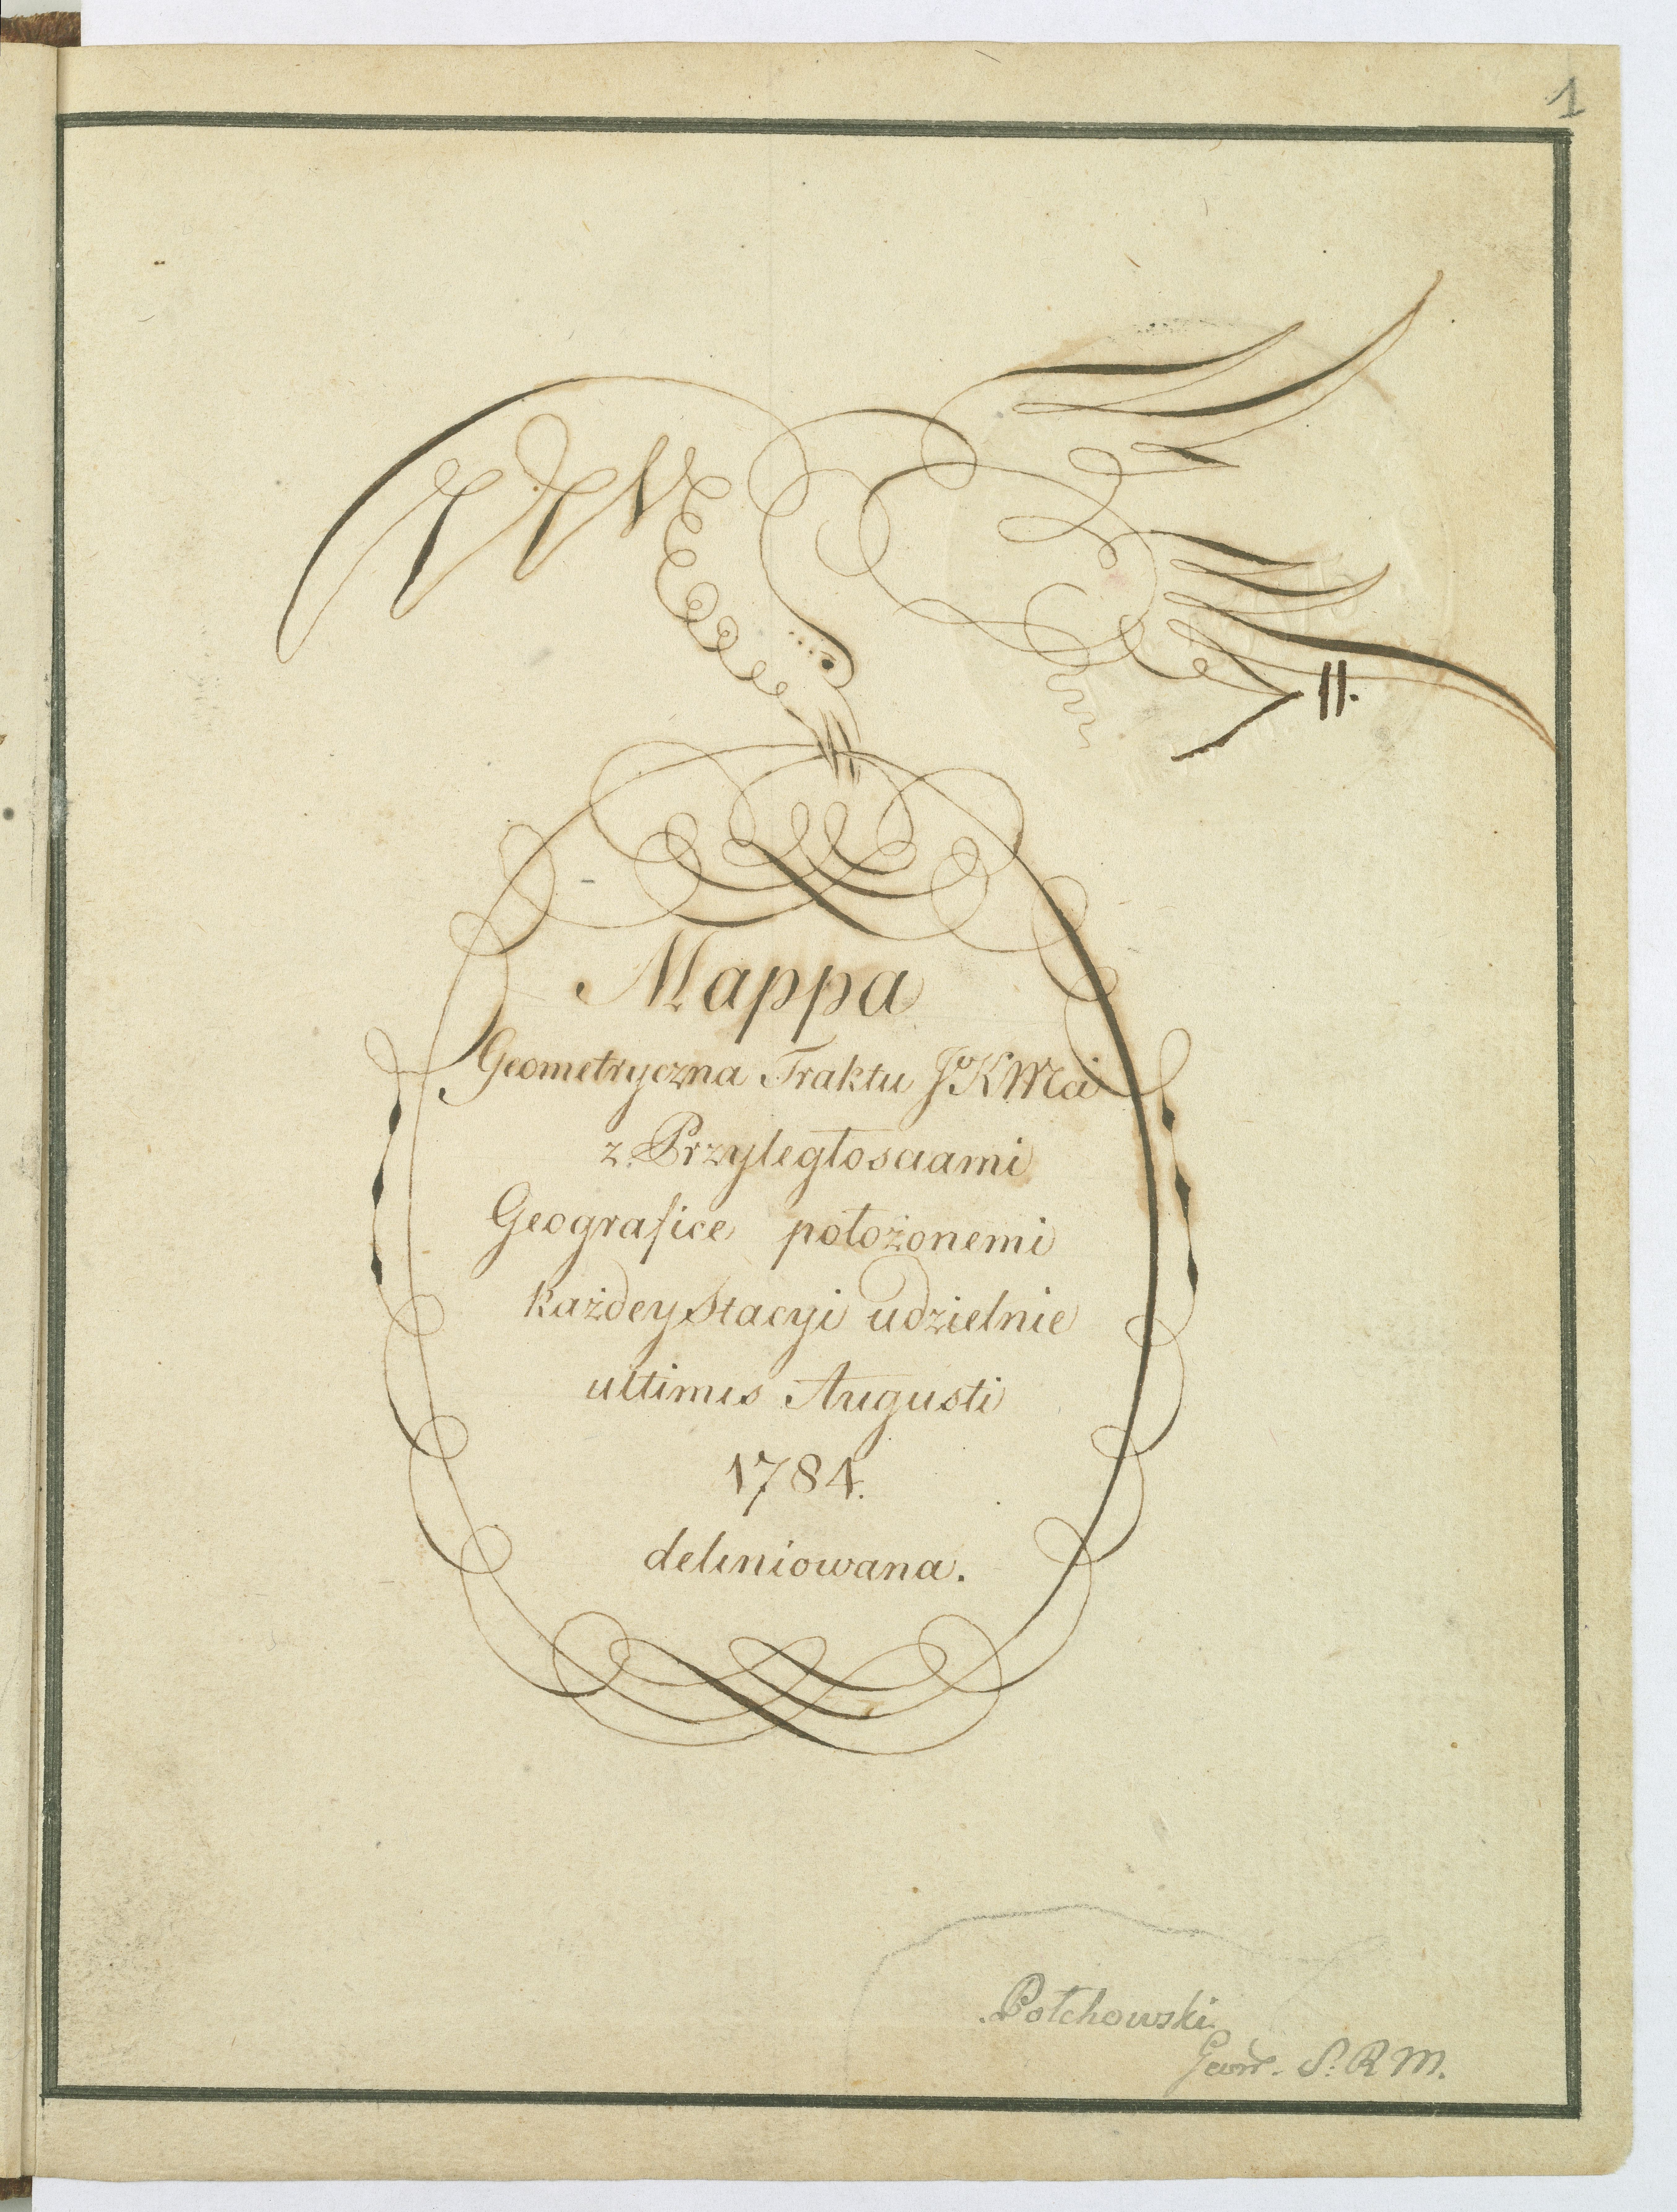 1
11.
Mappa
Geometryczna Traktu JºKMci
z Przyległosciami
Geografice położonemi
każdey Stacyi udzielnie
ultimis Augusti
1784.
deliniowana.
Połchowski
S. R M.